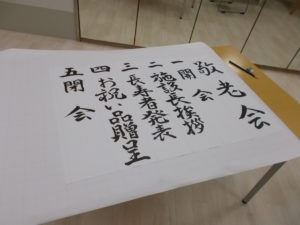 敬老会
一 開会
二 施設長挨拶
三 長寿者発表
四 お祝い品贈呈
五 閉会